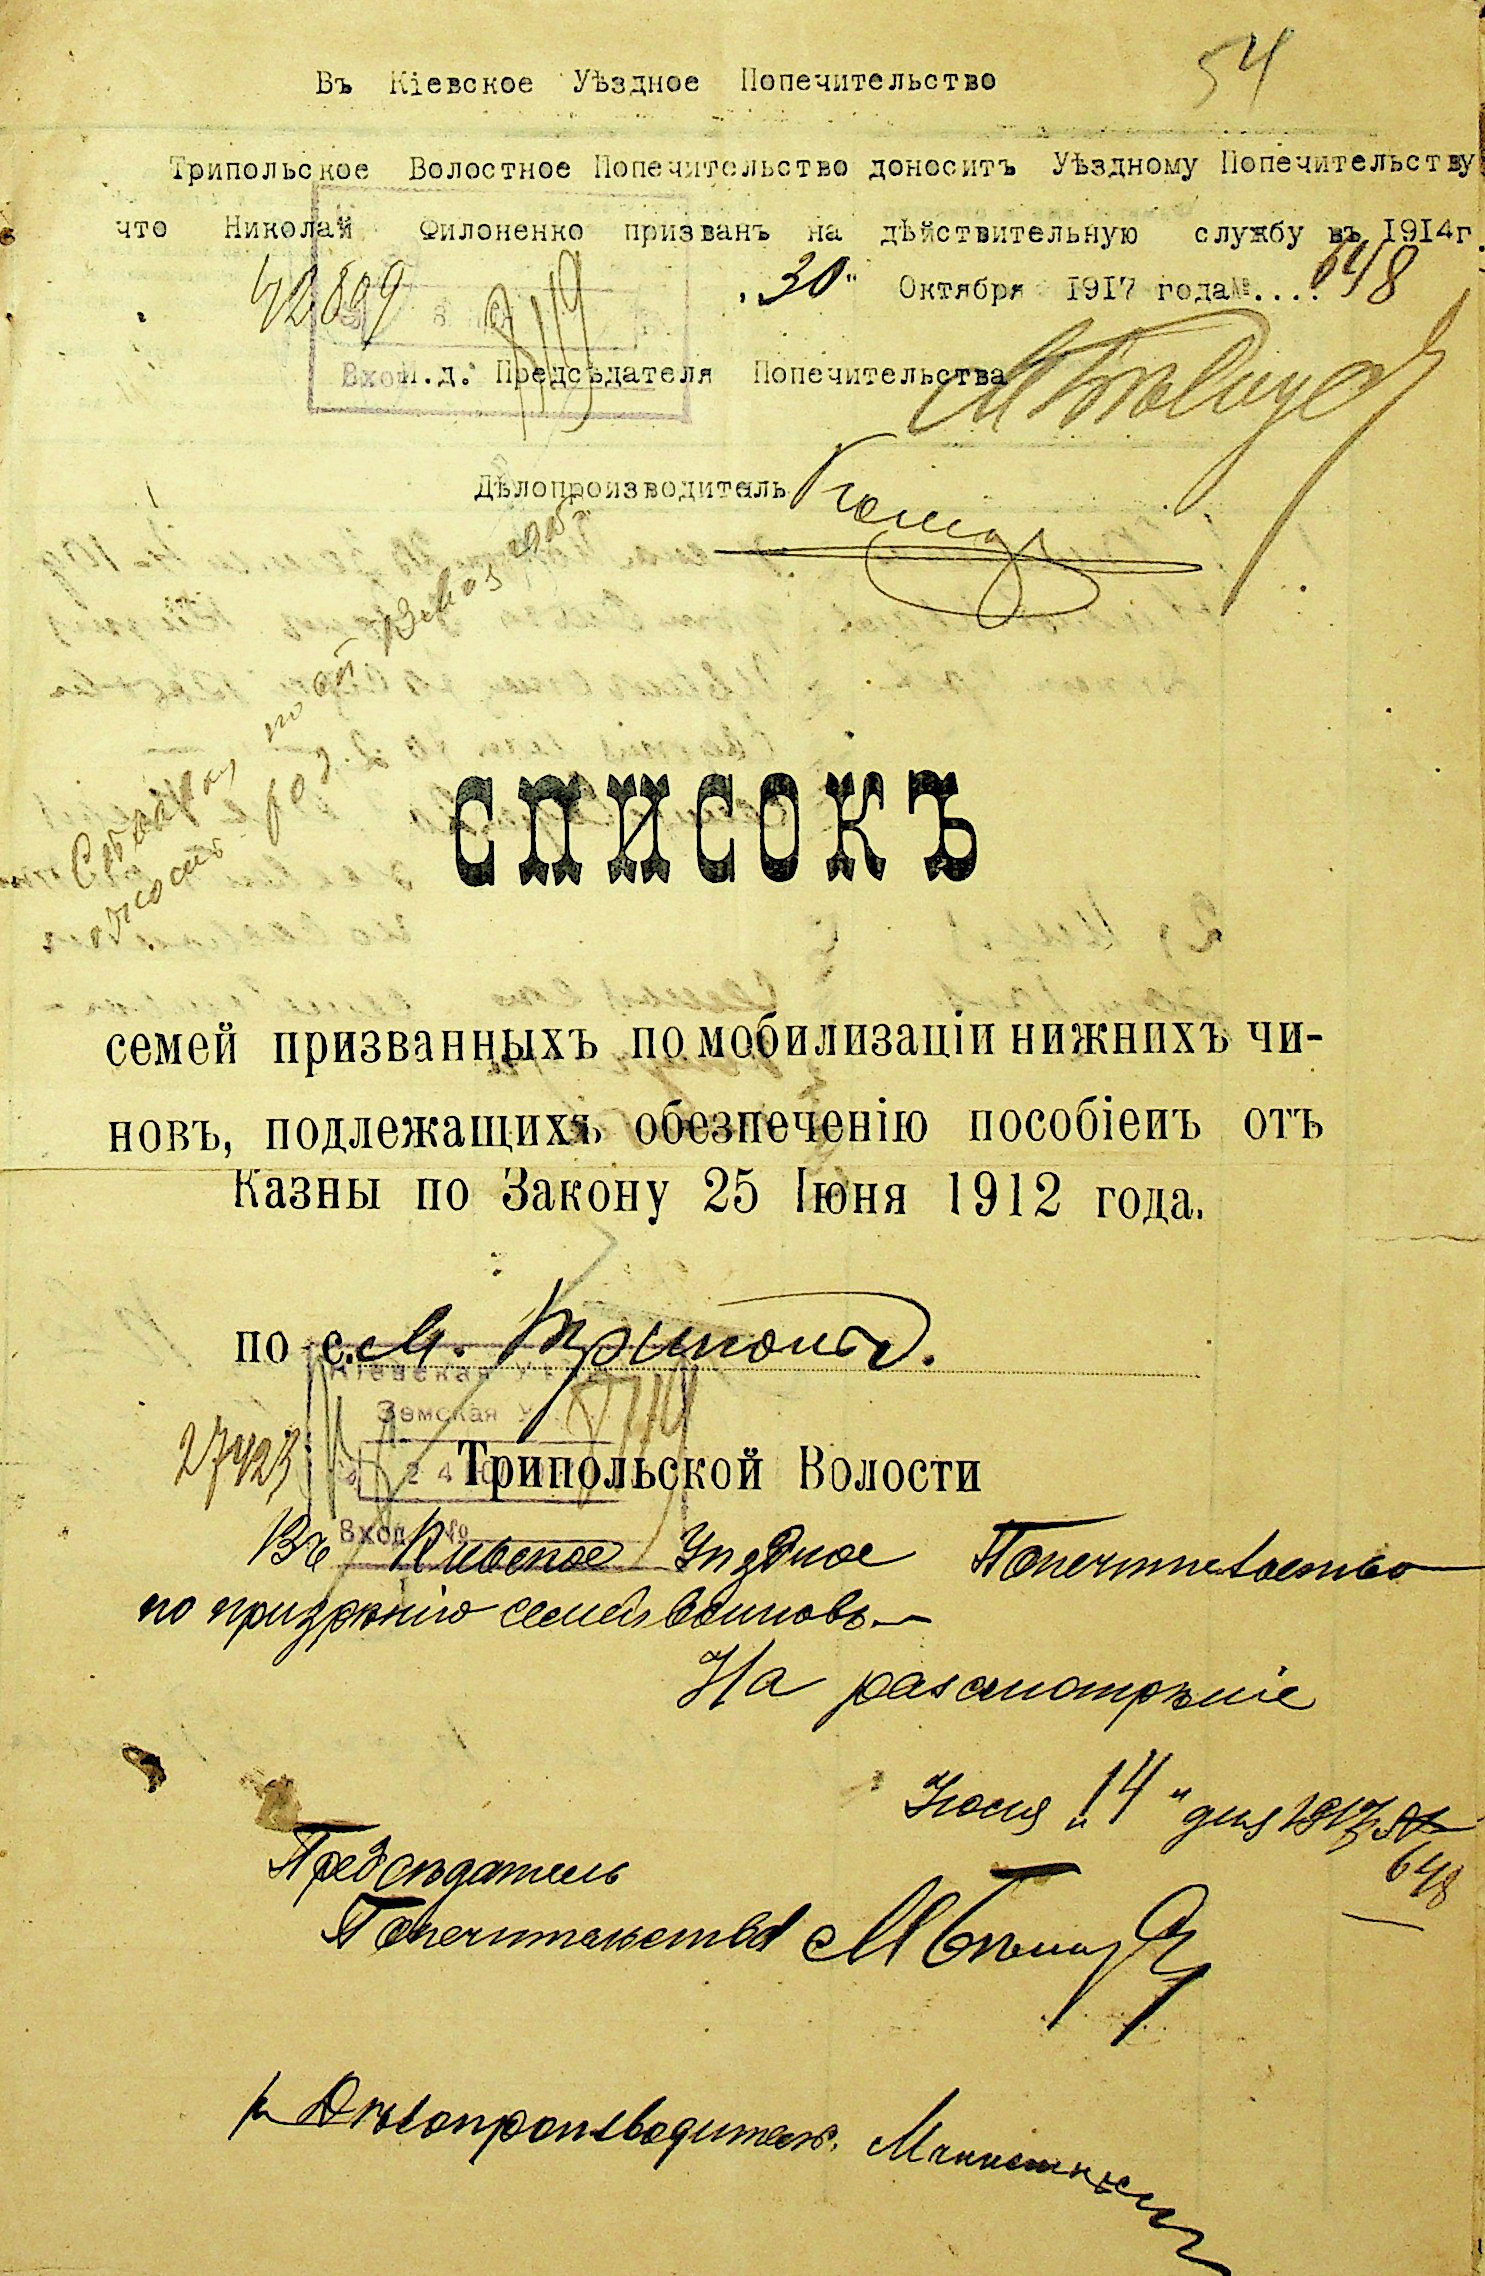 54
Въ Кіевское Уѣздное Попечительство
Трипольское Волостное Попечительство доноситъ Уѣздному Попечительству
что Николай Филоненко призванъ на дѣйствительную службу въ 1914г.
42809
8119
„30" Октября 1917 года №.... 648
Вход
И.д. Предсѣдателя Попечительства
Дѣлопроизводитель
СПИСОКЪ
семей призванныхъ по мобилизаціи нижнихъ чи-
новъ, подлежащихъ обезпеченію пособіемъ отъ
Казны по Закону 25 Іюня 1912 года.
по с. М. Триполью.
Кіевская У
Земская У
8119
27423
24
Трипольской Волости
Вход. №
Въ Киевское Уѣздное Попечительство
по призрѣнію семей воиновъ.—
На разсмотрѣніе
Июня „14" дня 1917 г. №
648
Предсѣдатель
Попечительства
Дѣлопроизводитель.